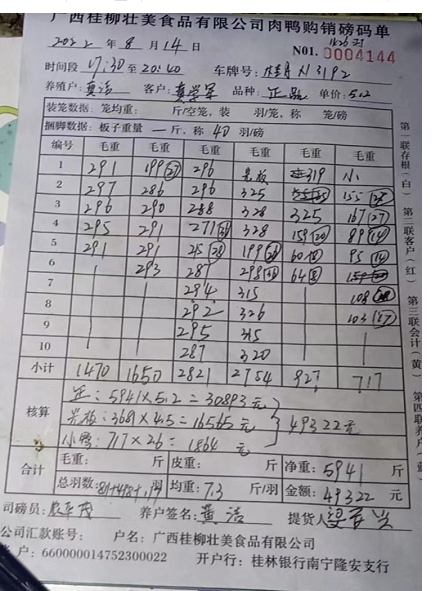 广西桂柳壮美食品有限公司肉鸭购销磅码单
2022年8月14日 NO1. 0004144
时间段 17:30至20:40 车牌号: 3192
养殖户: 黄洁 客户: 品种: 正品 单价: 5.2
装笼数据: 笼均重: 斤/空笼, 装 羽/笼, 称 笼/磅
捆脚数据: 板子重量 一 斤, 称 40 羽/磅
编号 毛重 毛重 毛重 毛重 毛重 毛重
1 291 199(27) 296 319 小
2 297 286 296 325
3 296 290 288 328 325 167(27)
4 295 291 271 328 159(20) 89(14)
5 291 291 199 60(8) 95(14)
6 293 287 298 64(8)
7 294 315 108
8 292 326 103(17)
9 295 315
10 287 320
小计 1470 1650 2821 2754 827 717
核算
正: 5941×5.2=30893元
3681×4.5=16565元
小鸭: 717×2.6=1864元
49322元
合计
毛重: 斤 皮重: 斤 净重: 5941 斤
总羽数: 羽 均重: 7.3 斤/羽 金额: 49322 元
司磅员: 养户签名: 黄洁 提货人
公司汇款账号: 户名: 广西桂柳壮美食品有限公司
户: 660000014752300022 开户行: 桂林银行南宁隆安支行
第一联存根(白) 第二联客户(红) 第三联会计(黄) 第四联养户